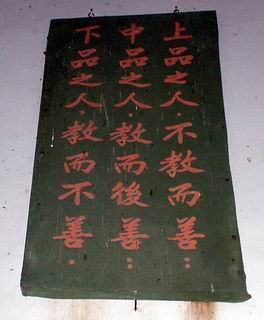 上品之人·不教而善：
中品之人·教而後善：
下品之人·教而不善：